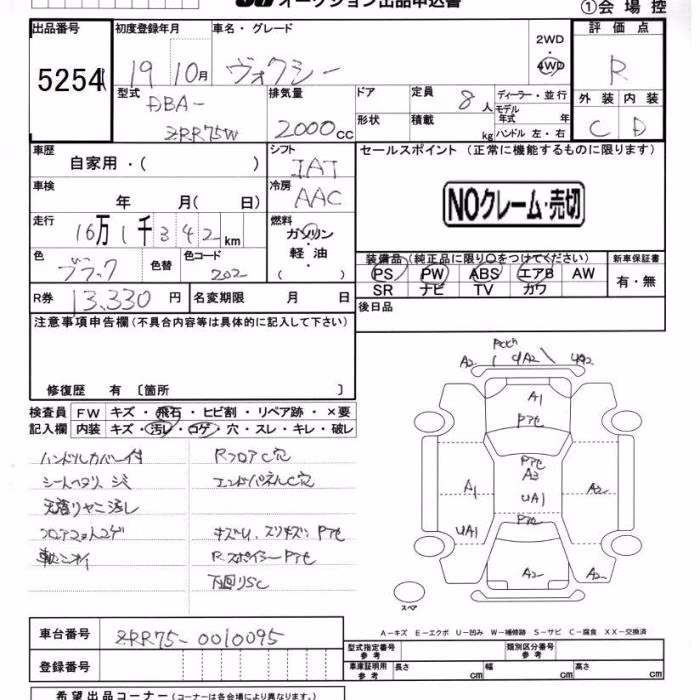 オークション出品申込書
①会場控
出品番号 初度登録年月 車名・グレード 2WD 4WD 評価点
5254 19 10月 ヴォクシー R
型式 排気量 ドア 定員 8人 ディーラー・並行 外装 内装
DBA- モデル年式 年 C D
ZRR75W 2000cc 形状 積載 kg ハンドル 左・右
車歴 自家用・( ) シフト IAT セールスポイント (正常に機能するものに限ります)
車検 年 月( 日) 冷房 AAC NOクレーム・売切
走行 16万1千342km 燃料 ガソリン
軽油
( )
色 ブラック 色替 色コード 202
装備品(純正品に限り○をつけてください) 新車保証書
PS PW ABS エアB AW 有・無
SR ナビ TV カワ
R券 13,330円 名変期限 月 日 後日品
注意事項申告欄(不具合内容等は具体的に記入して下さい)
修復歴 有 〔箇所 〕
検査員 FW キズ・飛石・ヒビ割・リペア跡・×要
記入欄 内装 キズ・汚レ・コゲ・穴・スレ・キレ・破レ
A2 4A2 4A2
A1
Pアセ
Pアセ
A3
A1 UA1 A2
UA1 Pアセ
A2 A2
スペア
ハンドルカバー付 RフロアC穴
シートヘタリ シミ エンドパネルC穴
天落リヤニ汚レ
フロアマットコゲ キズU、スリキズ、Pアセ
車内ニオイ RスポイラーPアセ
下回りSC
A－キズ E－エクボ U－凹み W－補修跡 S－サビ C－腐食 XX－交換済
車台番号 ZRR75-0010095
登録番号
型式指定番号 参考 類別区分番号 参考
車庫証明用 参考 長さ cm 幅 cm 高さ cm
希望出品コーナー(コーナーは各会場により異なります。)